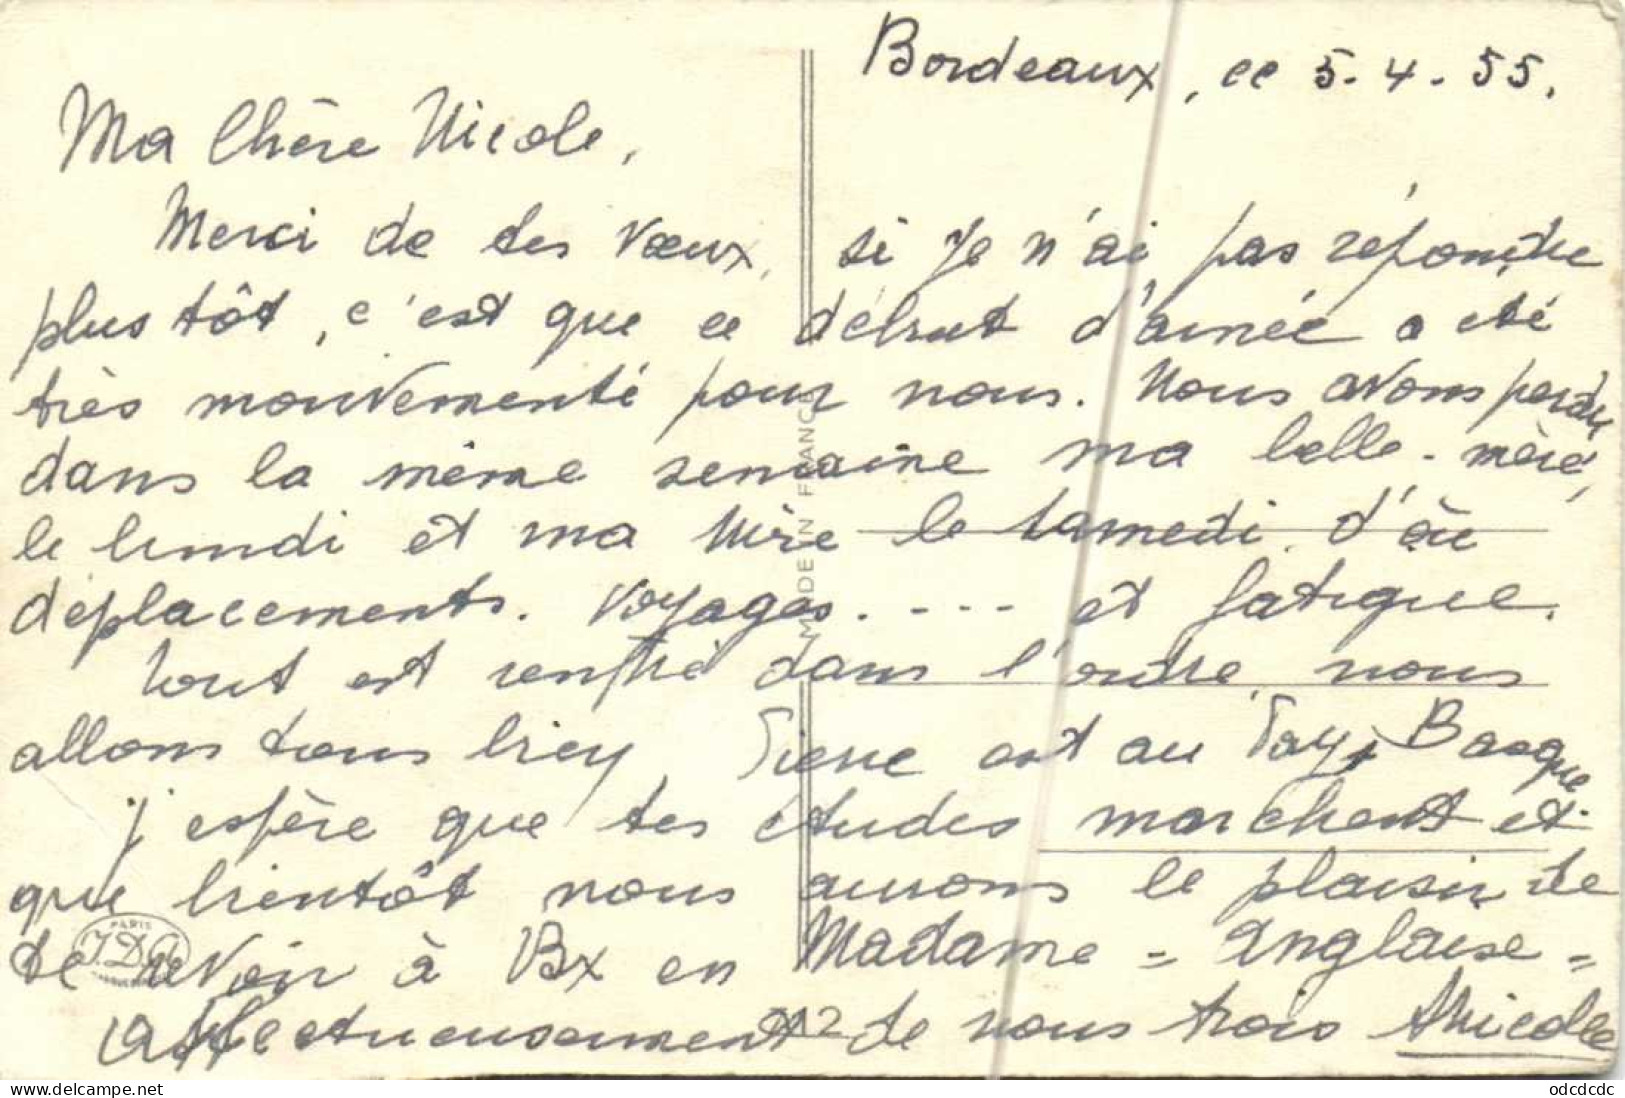 Bordeaux, ce 5-4-55.
Ma Chère Nicole,
Merci de tes vœux, si je n'ai pas répondre
plus tôt, c'est que ce début d'année a été
très mouvementé pour nous. Nous avons perdu
dans la même semaine ma belle-mère,
le lundi et ma Mère le samedi. d'où
déplacements. Voyages. --- et fatigue.
Tout est rentré dans l'ordre, nous
allons tous bien, est au Pays Basque
j'espère que tes études marchent et
que bientôt nous aurons le plaisir de
te revoir à Bx en Madame = Anglaise =
affectueusement de nous trois
MADE IN FRANCE
PARIS
212
odcdcdc